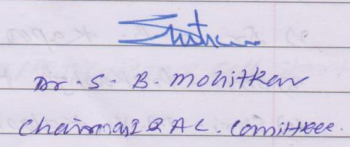 Dr. S. B. Mohitkar
Chairman IQAC. Comittee.